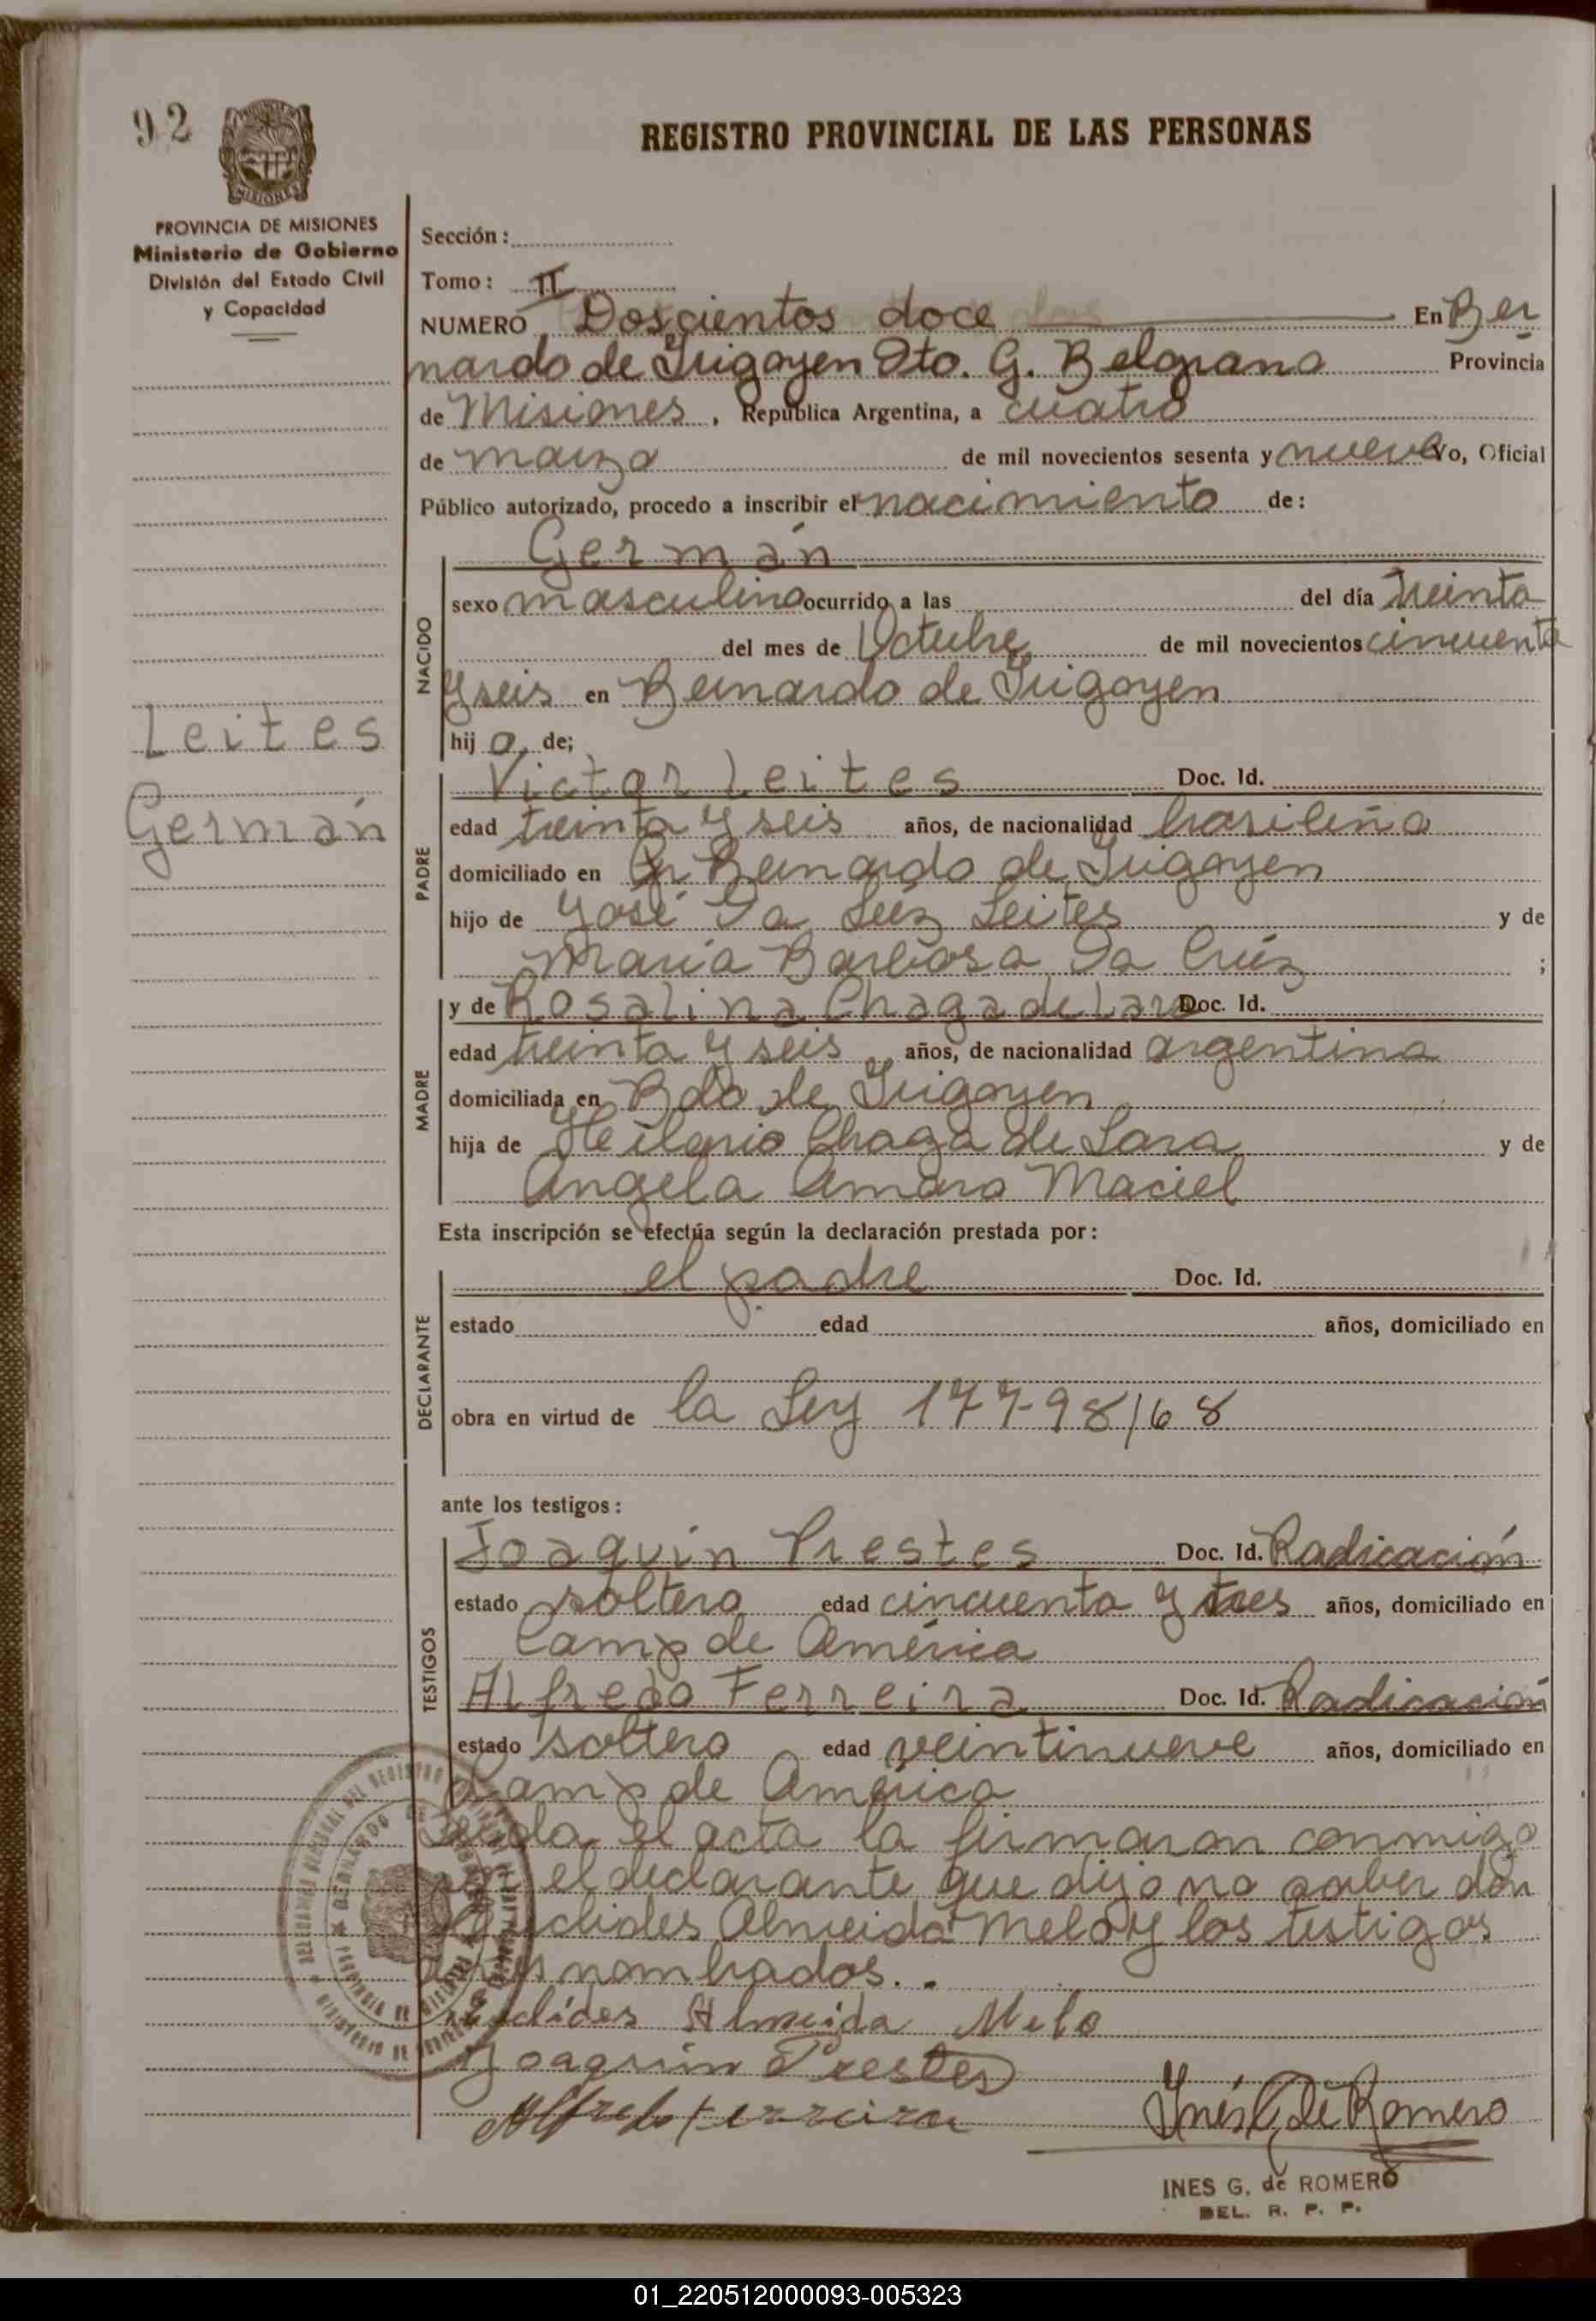 92
PROVINCIA DE MISIONES
Ministerio de Gobierno
División del Estado Civil
y Capacidad
REGISTRO PROVINCIAL DE LAS PERSONAS
Sección:
Tomo: II
NUMERO Doscientos doce En Ber
nardo de Irigoyen Dto. G. Belgrano Provincia
de Misiones, República Argentina, a cuatro
de marzo de mil novecientos sesenta y nueve Yo, Oficial
Público autorizado, procedo a inscribir el nacimiento de:
Germán
NACIDO
sexo masculino ocurrido a las del día treinta
del mes de Octubre de mil novecientos cincuenta
y seis en Bernardo de Irigoyen
hij o de;
Leites
Germán
PADRE
Victor Leites Doc. Id.
edad treinta y seis años, de nacionalidad brasileña
domiciliado en Bernardo de Irigoyen
hijo de José Da Luz Leites y de
María Barbosa Da Crúz ;
MADRE
y de Rosalina Chaga de Lara Doc. Id.
edad treinta y seis años, de nacionalidad argentina
domiciliada en Bdo de Irigoyen
hija de Heilario Chaga de Lara y de
Angela Amaro Maciel
Esta inscripción se efectúa según la declaración prestada por:
DECLARANTE
el padre Doc. Id.
estado edad años, domiciliado en
obra en virtud de la Ley 177-98/68
ante los testigos:
TESTIGOS
Joaquín Prestes Doc. Id. Radicación
estado soltero edad cincuenta y tres años, domiciliado en
Camp de América
Alfredo Ferreira Doc. Id. Radicación
estado soltero edad veintinueve años, domiciliado en
Camp de América
Leida el acta la firmaron conmigo
por el declarante que dijo no saber don
Euclides Almeida Melo y los testigos
nombrados..
Euclídes Almeida Melo
Joaquín Prestes
Alfredo Ferreira
Inés G. de Romero
INES G. de ROMERO
DEL. R. P. P.
01_220512000093-005323